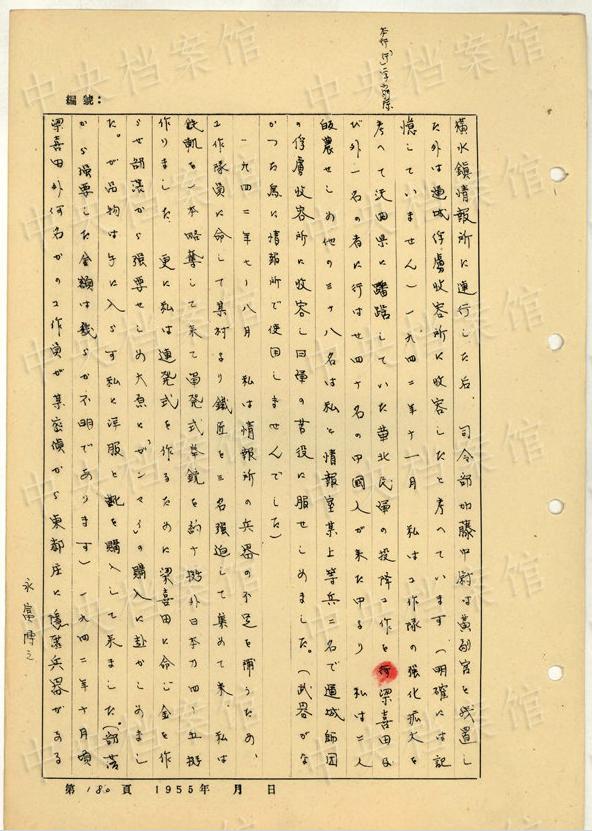 本行「行」字削除
編號:
橫水鎮情報所に連行した后、司令部加藤中尉は黄副官を残置し
た外は運城俘虜收容所に收容したと考へています(明確には記
憶していません)一九四二年十一月 私は工作隊の強化拡大を
考へて沃曲県に蟠踞していた黄北民軍の投降工作を行梁喜田及
び外一名の者に行はせ四十名の中國人が来た中より 私は二人
皈農せしめ他の三十八名は私と情報室某上等兵二名で運城師団
の俘虜收容所に收容し回運の苦役に服せしめました。(武器がな
かつた為に情報所で使用しませんでした)
一九四二年七-八月 私は情報所の兵器の不足を補うため、
工作隊員に命して某村より鐵匠を三名強迫して集めて来、私は
鉄軌を一本略奪して来て單発式拳銃を約十挺外日本刀四、五挺
作りました 更に私は連発式を作るために梁喜田に命じ金を作
らせ部落から強要せしめ太原にの購入に赴かしめまし
た。が品物は手に入らず私と洋服と靴を購入して来ました。(部落
から強要した金額は幾らか不明であります)一九四二年十月頃
梁喜田外何名かの工作員が某密偵から東都庄に隱匿兵器がある
永富博之
第180頁 1955年 月 日
中央档案馆